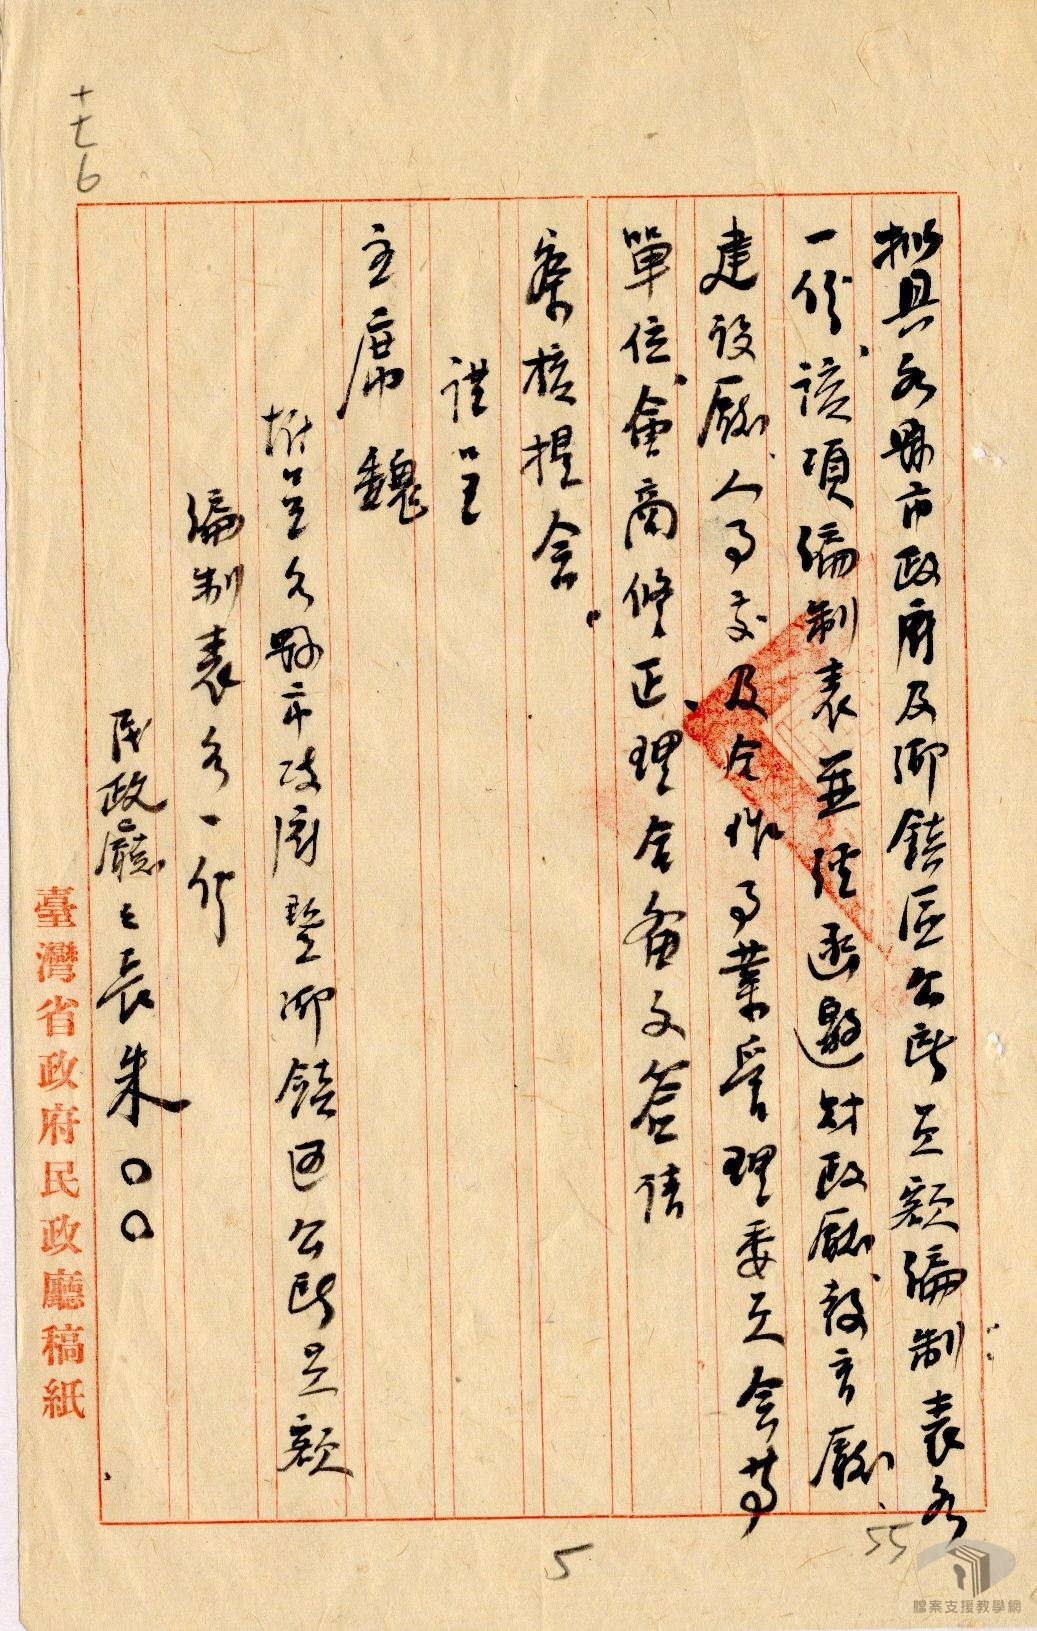 擬具各縣市政府及鄉鎮區公所員額編制表各
一份、該項編制表並經函邀財政廳、教育廳、
建設廳、人事室及合作事業管理委員會等
單位、會商修正、理合備文簽請
察核提會。
謹呈
主席魏
附呈各縣市政府暨鄉鎮區公所員額
編制表各一份
民政廳長朱〇〇
臺灣省政府民政廳稿紙
十七6
55
5
檔案支援教學網